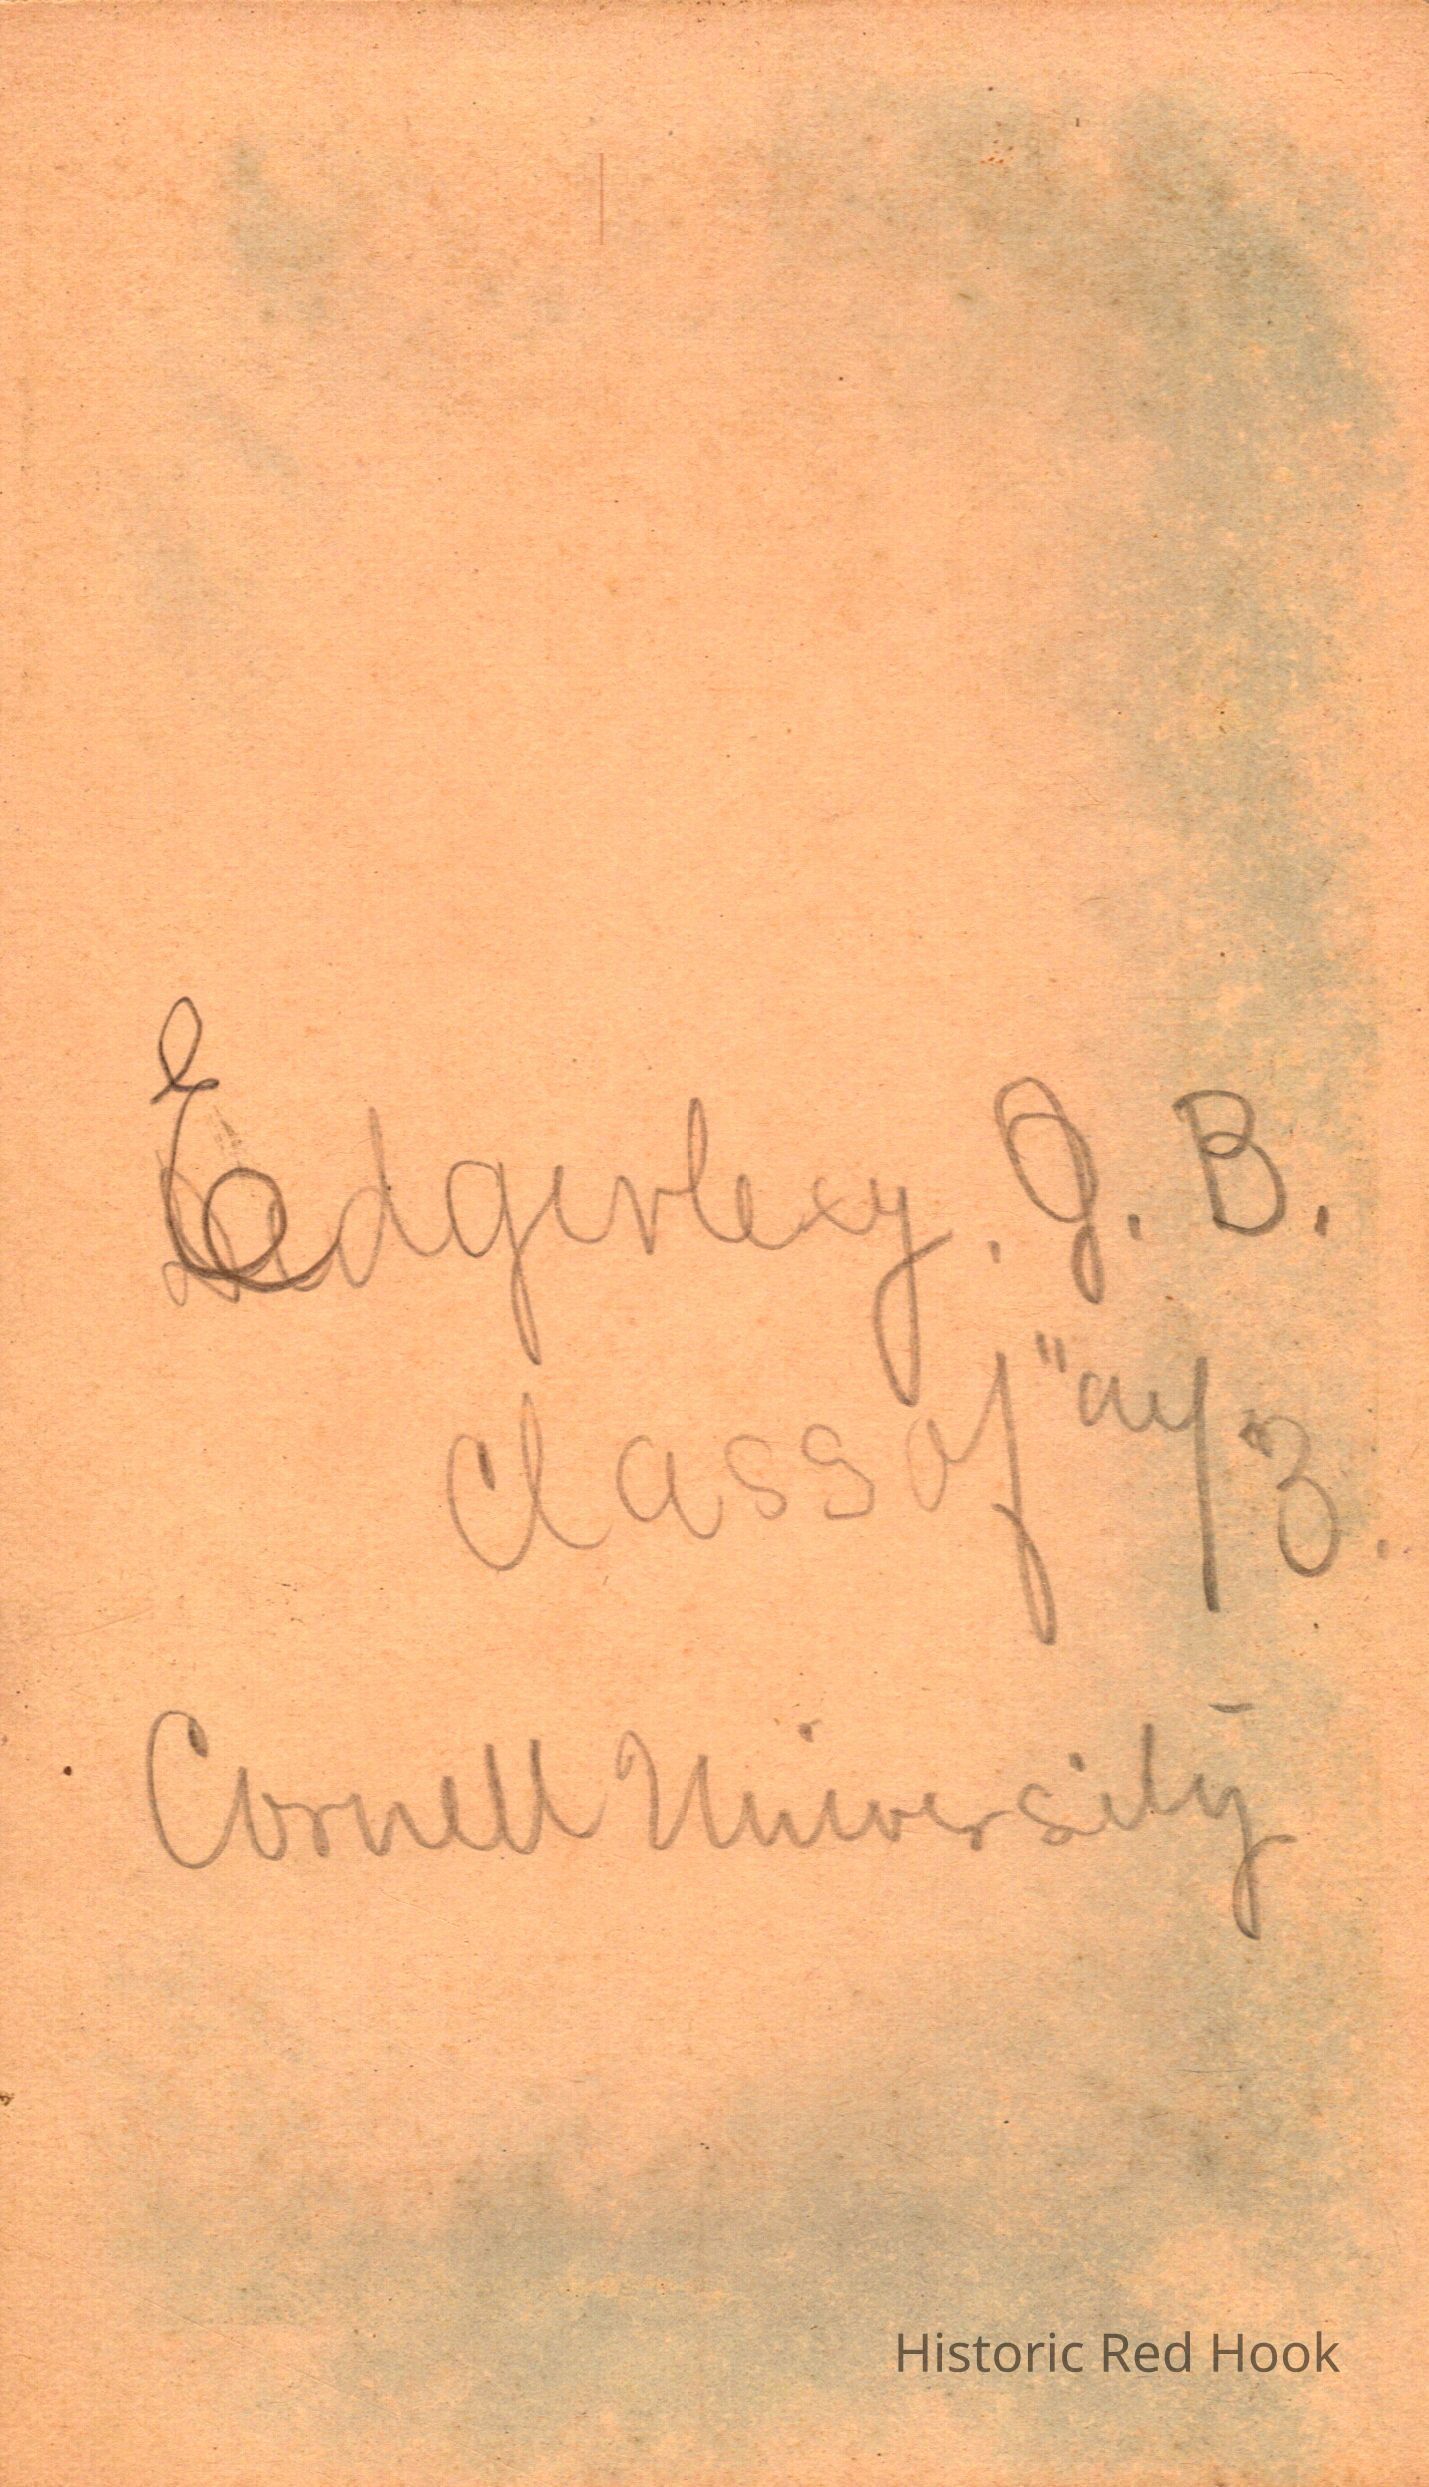 Edgerley. J. B.
Class of
Cornell University
Historic Red Hook